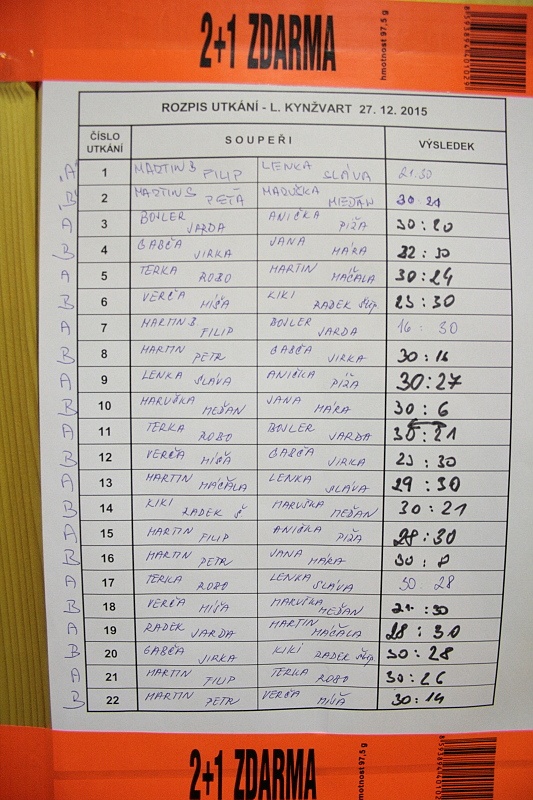 2+1 ZDARMA
hmotnost 97,5 g
ROZPIS UTKÁNÍ - L. KYNŽVART 27. 12. 2015
ČÍSLO UTKÁNÍ SOUPEŘI VÝSLEDEK
"A" 1 MARTIN B FILIP LENKA SLÁVA 21:30
"B" 2 MARTIN S PEŤA MARUŠKA MEĎAN 30:21
A 3 BOJLER JARDA ANIČKA PÍŽA 30:20
B 4 GABČA JIRKA JANA MÁRA 22:30
A 5 TERKA ROBO MARTIN MÁČALA 30:24
B 6 VERČA MÍŠA KIKI RADEK Štip. 23:30
A 7 MARTIN B FILIP BOJLER JARDA 16:30
B 8 MARTIN PETR GABČA JIRKA 30:16
A 9 LENKA SLÁVA ANIČKA PÍŽA 30:27
B 10 MARUŠKA MEĎAN JANA MÁRA 30:6
A 11 TERKA ROBO BOJLER JARDA 30:21
B 12 VERČA MÍŠA GABČA JIRKA 23:30
A 13 MARTIN MÁČALA LENKA SLÁVA 29:30
B 14 KIKI RADEK Š MARUŠKA MEĎAN 30:21
A 15 MARTIN FILIP ANIČKA PÍŽA 28:30
B 16 MARTIN PETR JANA MÁRA 30:8
A 17 TERKA ROBO LENKA SLÁVA 30:28
B 18 VERČA MÍŠA MARUŠKA MEĎAN 21:30
A 19 RADEK JARDA MARTIN MÁČALA 28:30
B 20 GABČA JIRKA KIKI RADEK Štip. 30:28
A 21 MARTIN FILIP TERKA ROBO 30:26
B 22 MARTIN PETR VERČA MÍŠA 30:14
2+1 ZDARMA
hmotnost 97,5 g